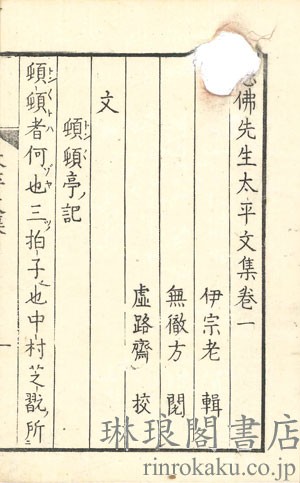 佛先生太平文集卷一
伊宗老 輯
無徹方 閱
虛路齋 校
文
頓頓亭記
頓頓者何也三拍子也中村芝翫所
琳琅閣書店
rinrokaku.co.jp